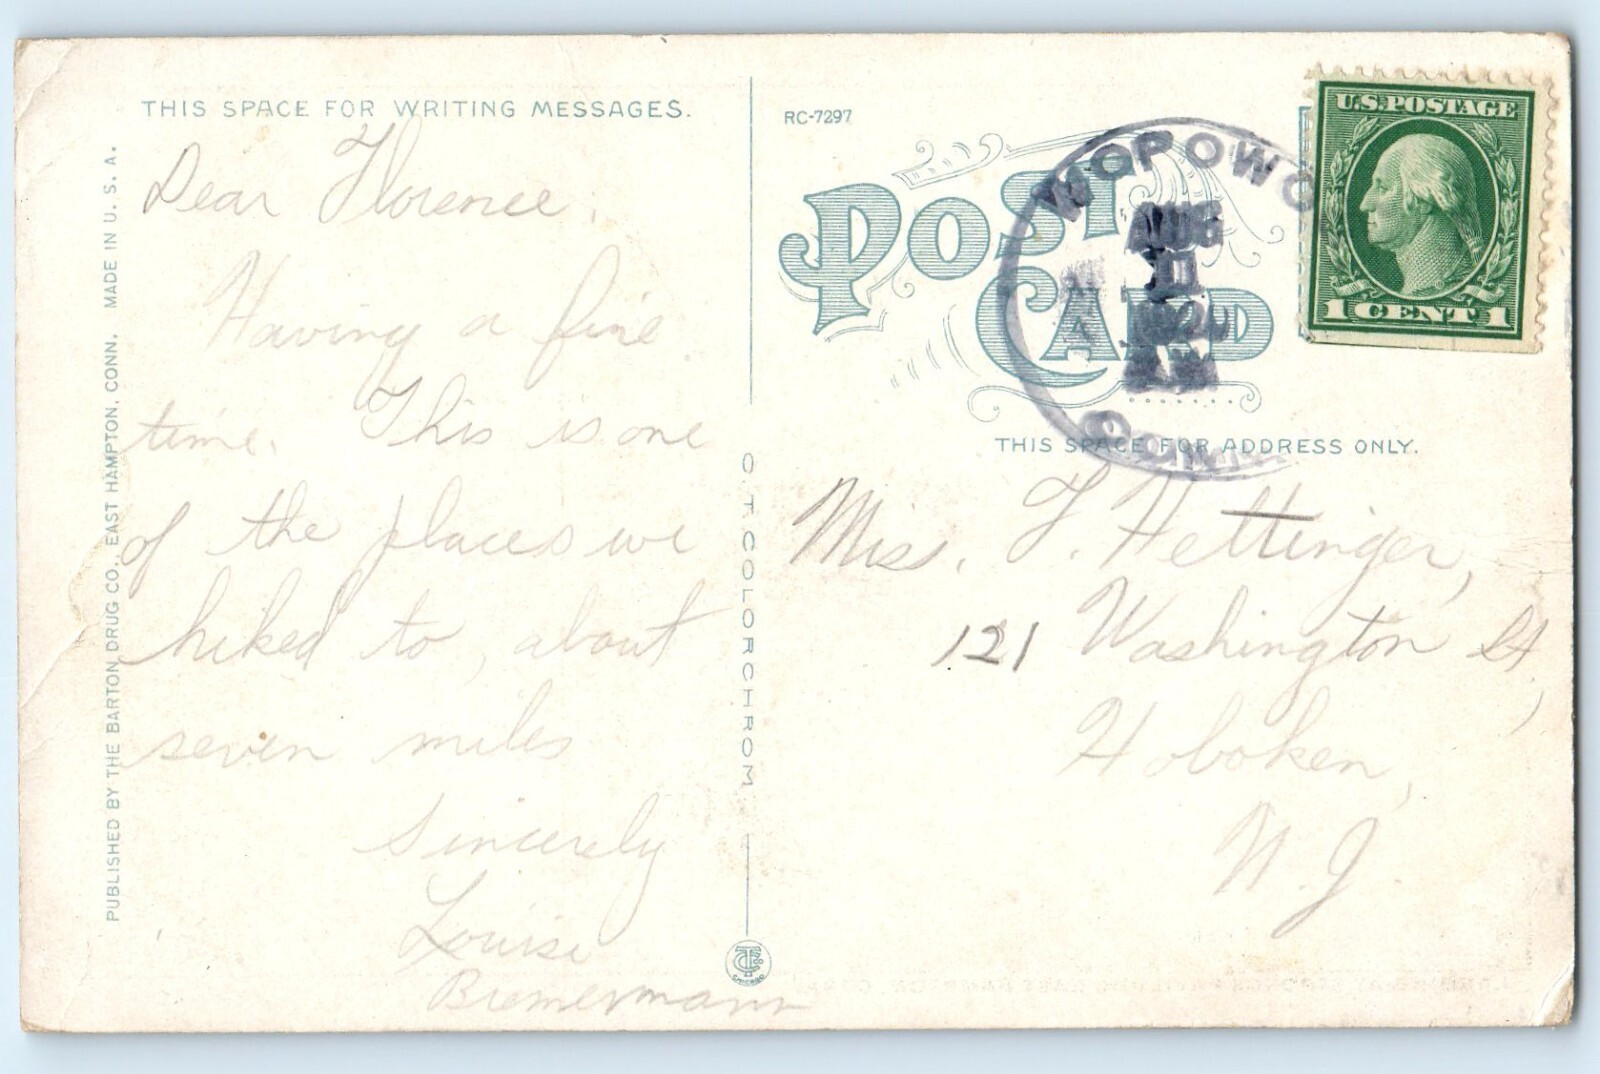 THIS SPACE FOR WRITING MESSAGES.
Dear Florence,
Having a fine
time. This is one
of the places we
hiked to, about
seven miles
Sincerely
Louise
Biemermann
PUBLISHED BY THE BARTON DRUG CO. EAST HAMPTON, CONN. MADE IN U. S. A.
C.T. COLORCHROM
RC-7297
POST CARD
WOPOWO
AUG
11
CONN
U.S. POSTAGE
1 CENT 1
THIS SPACE FOR ADDRESS ONLY.
Miss. F. Hettinger,
121 Washington St,
Hoboken,
N. J.